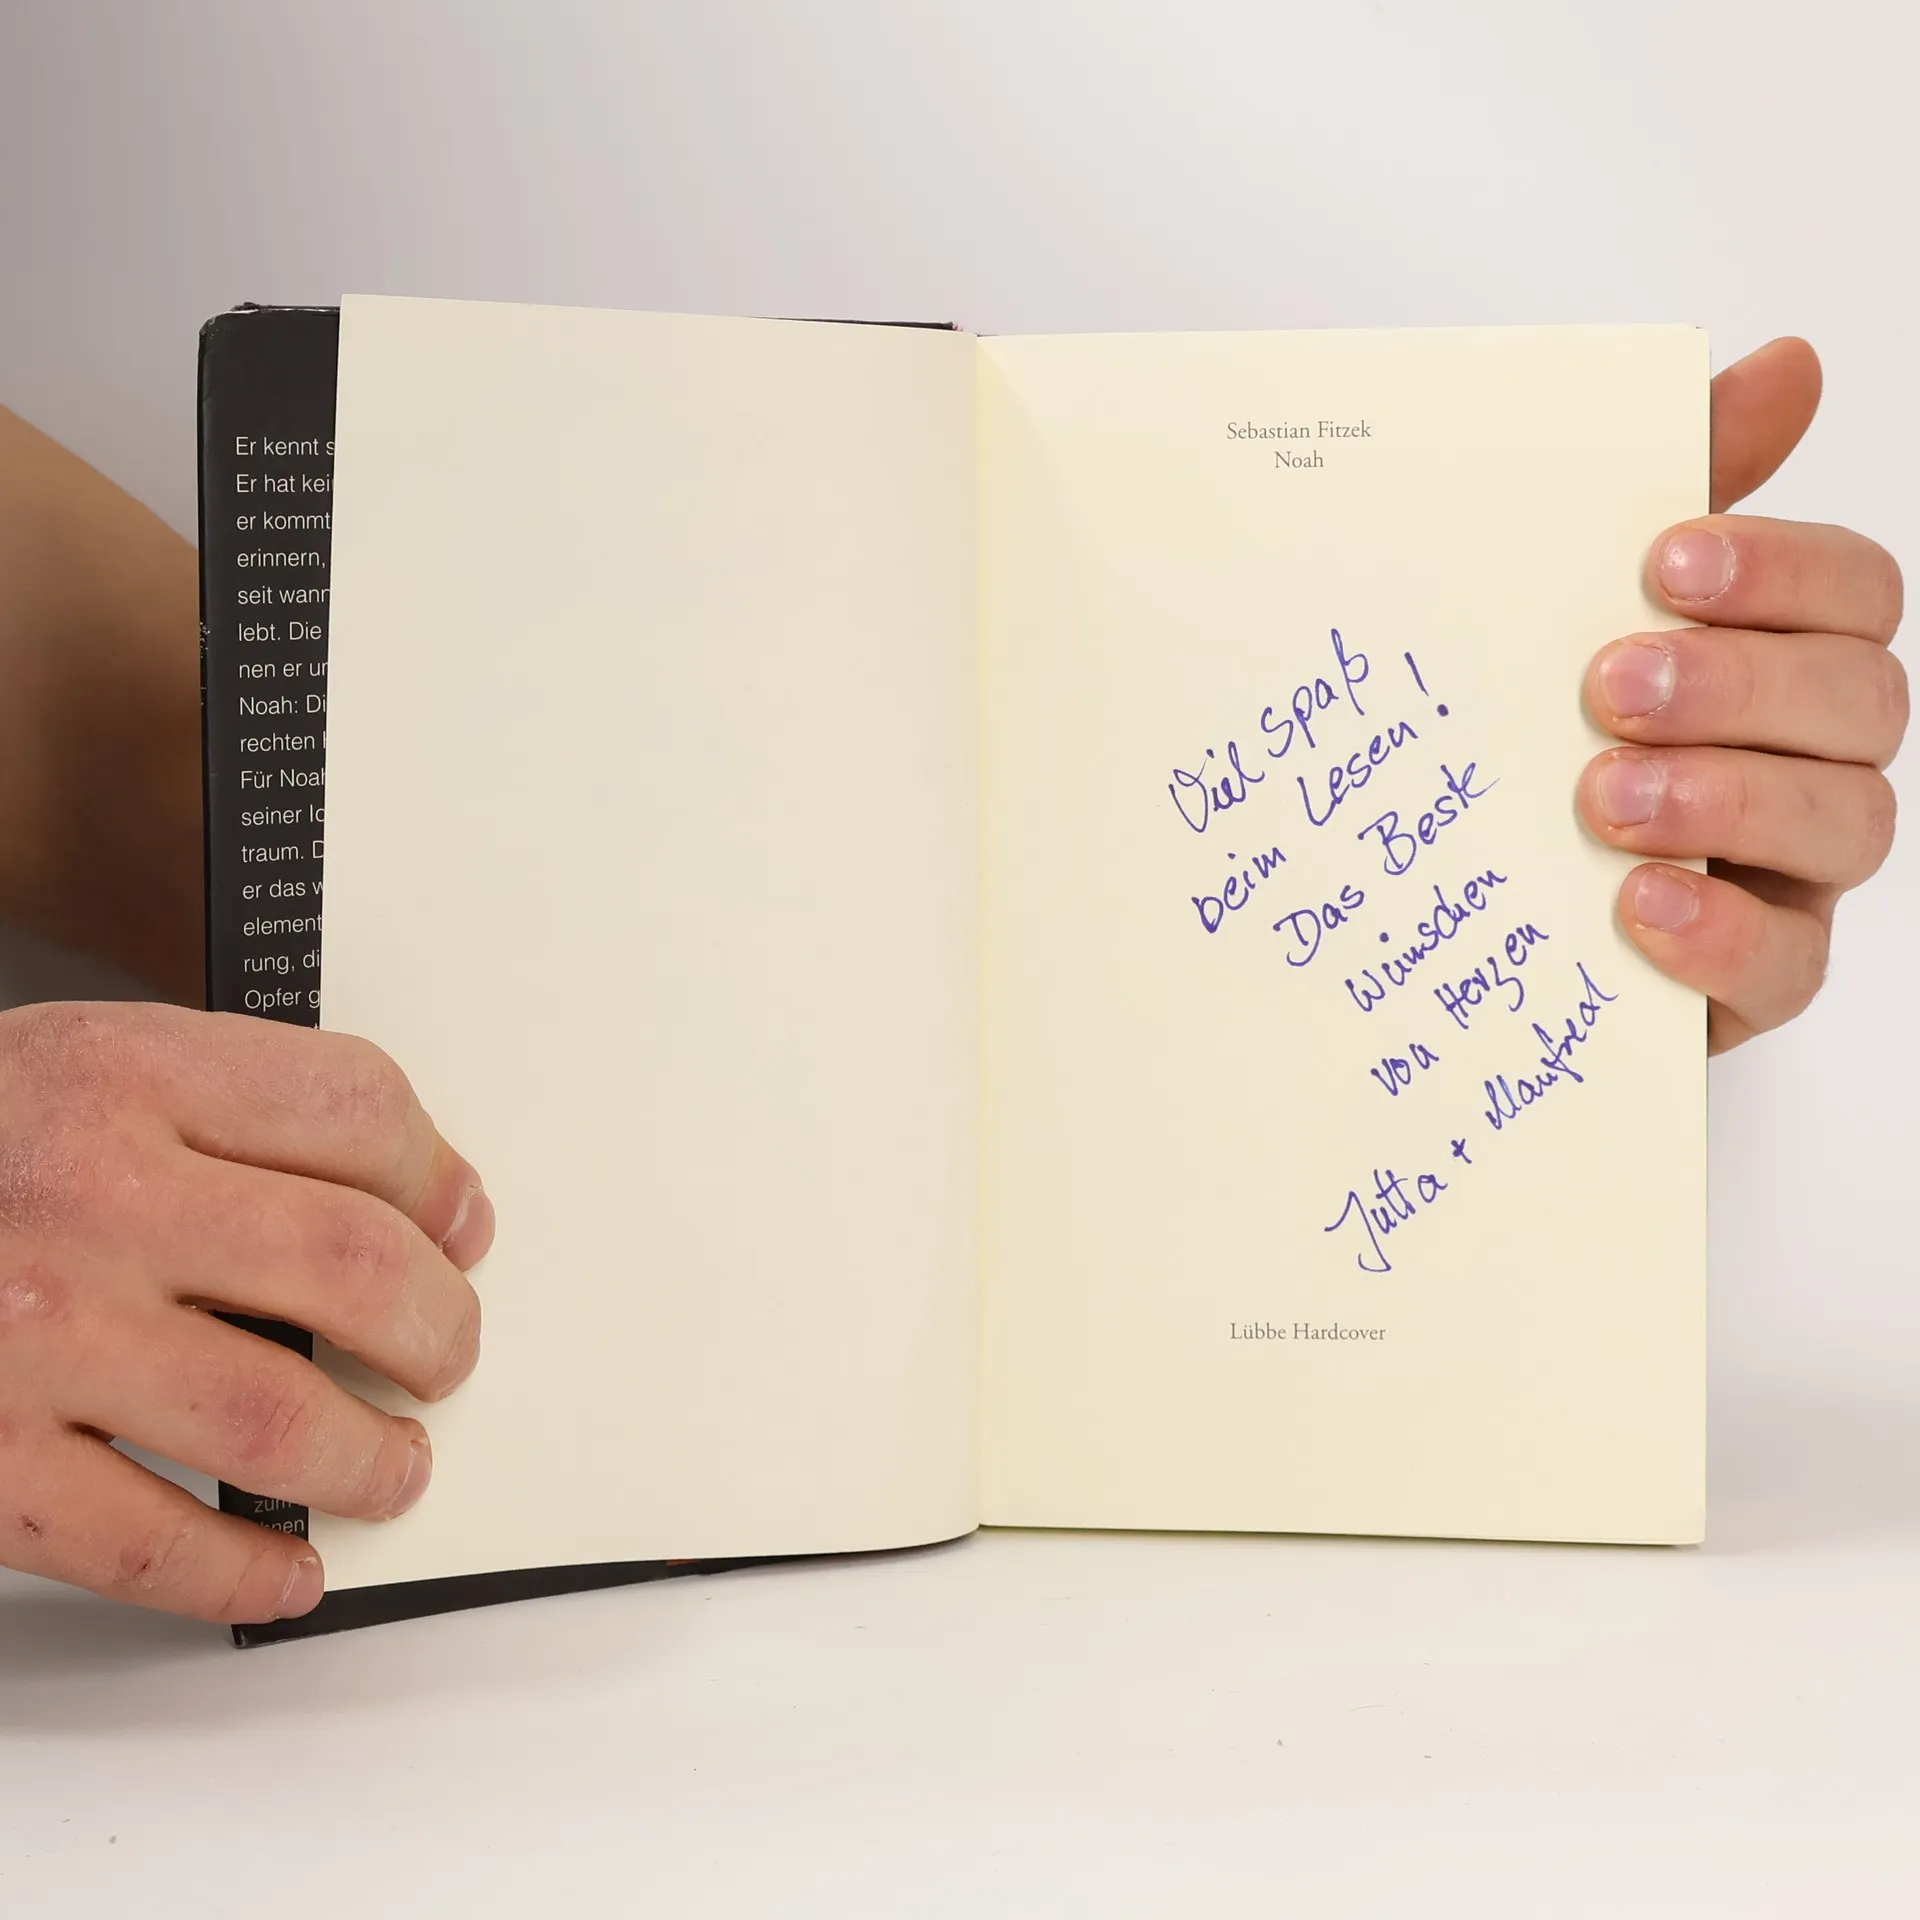 Er kennt s
Er hat kei
er kommt
erinnern,
seit wann
lebt. Die
nen er un
Noah: Di
rechten
Für Noah
seiner Id
traum. D
er das w
element
rung, di
Opfer g
zum
hnen
Sebastian Fitzek
Noah
Viel Spaß
beim Lesen!
Das Beste
wünschen
von Herzen
Jutta + Manfred
Lübbe Hardcover